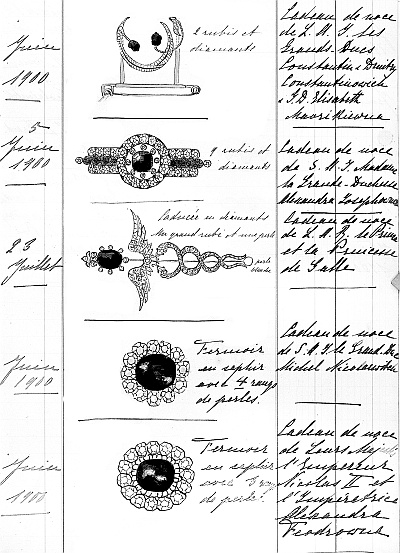 Juin
1900
2 rubis et
diamants
Cadeau de noce
de L. A. I. les
Grands-Ducs
Constantin & Dmitry
Constantinowich
& I. D. Elisabeth
Mavrikievna
5
Juin
1900
9 rubis et
diamants
Cadeau de noce
de S. A. I. Madame
la Grande-Duchesse
Alexandra Josephowna
23
Juillet
Caducée en diamants
Un grand rubi et une perle
perle
blanche
Cadeau de noce
de L. A. R. le Prince
et la Princesse
de Galle
Juin
1900
Fermoir
en saphir
avec 4 rangs
de perles.
Cadeau de noce
de S. A. I. le Grand-Duc
Michel Nicolaewitch
Juin
1900
Fermoir
en saphir
avec
de perles.
Cadeau de noce
de Leurs Majestés
l'Empereur
Nicolas II et
l'Impératrice
Alexandra
Feodrowna